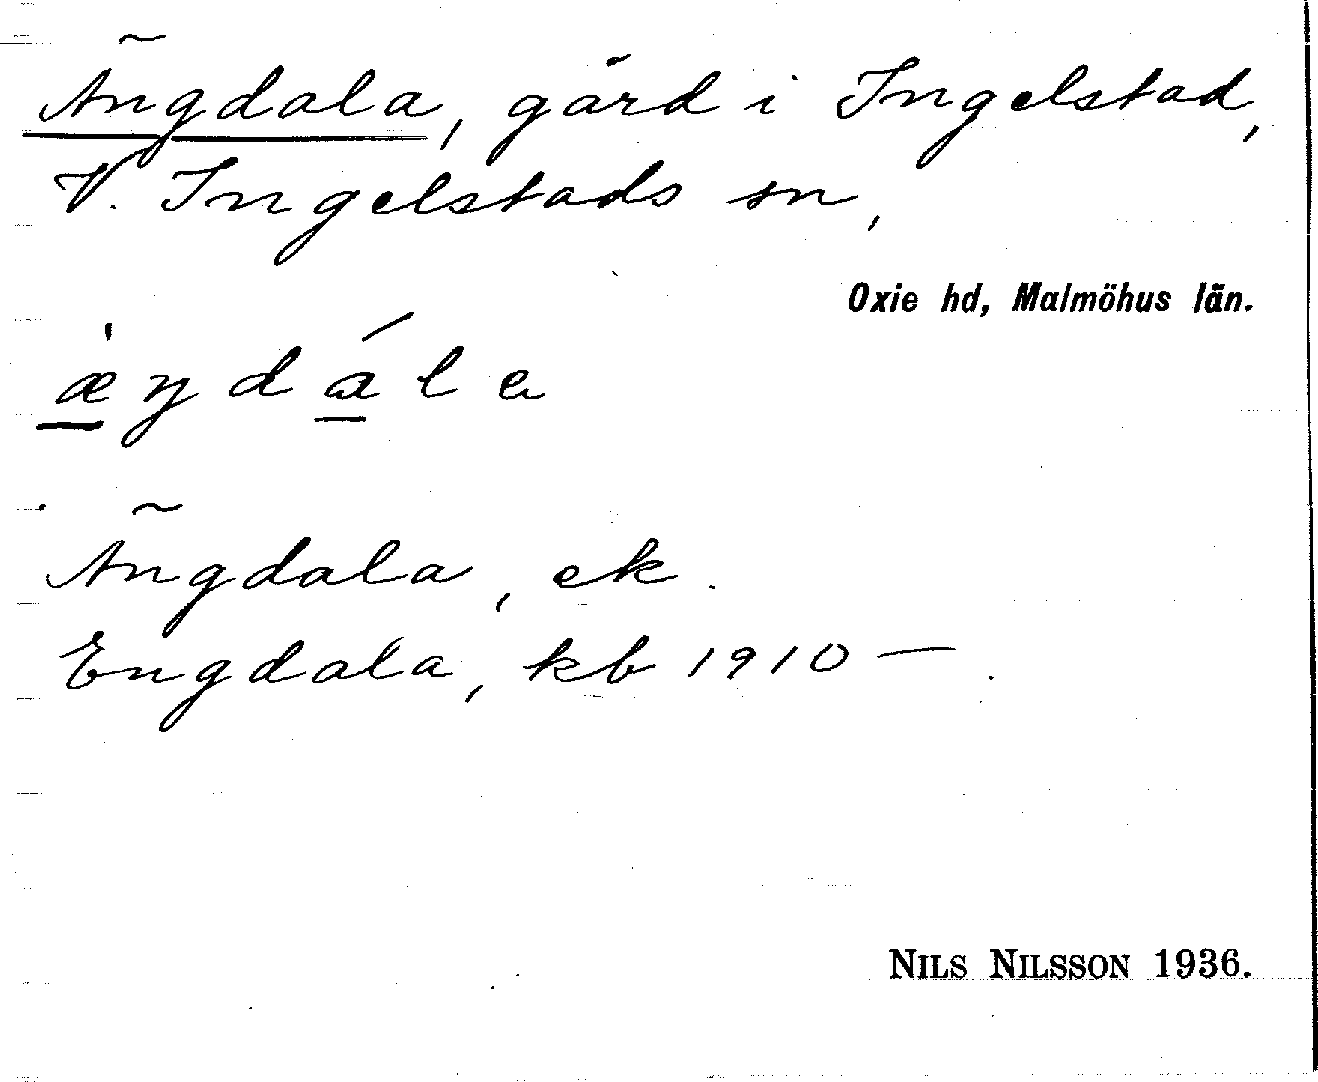 Ängdala, gård i Ingelstad,
V. Ingelstads sn,
Oxie hd, Malmöhus län.
Ängdala, ek.
Engdala, kb 1910 —
NILS NILSSON 1936.